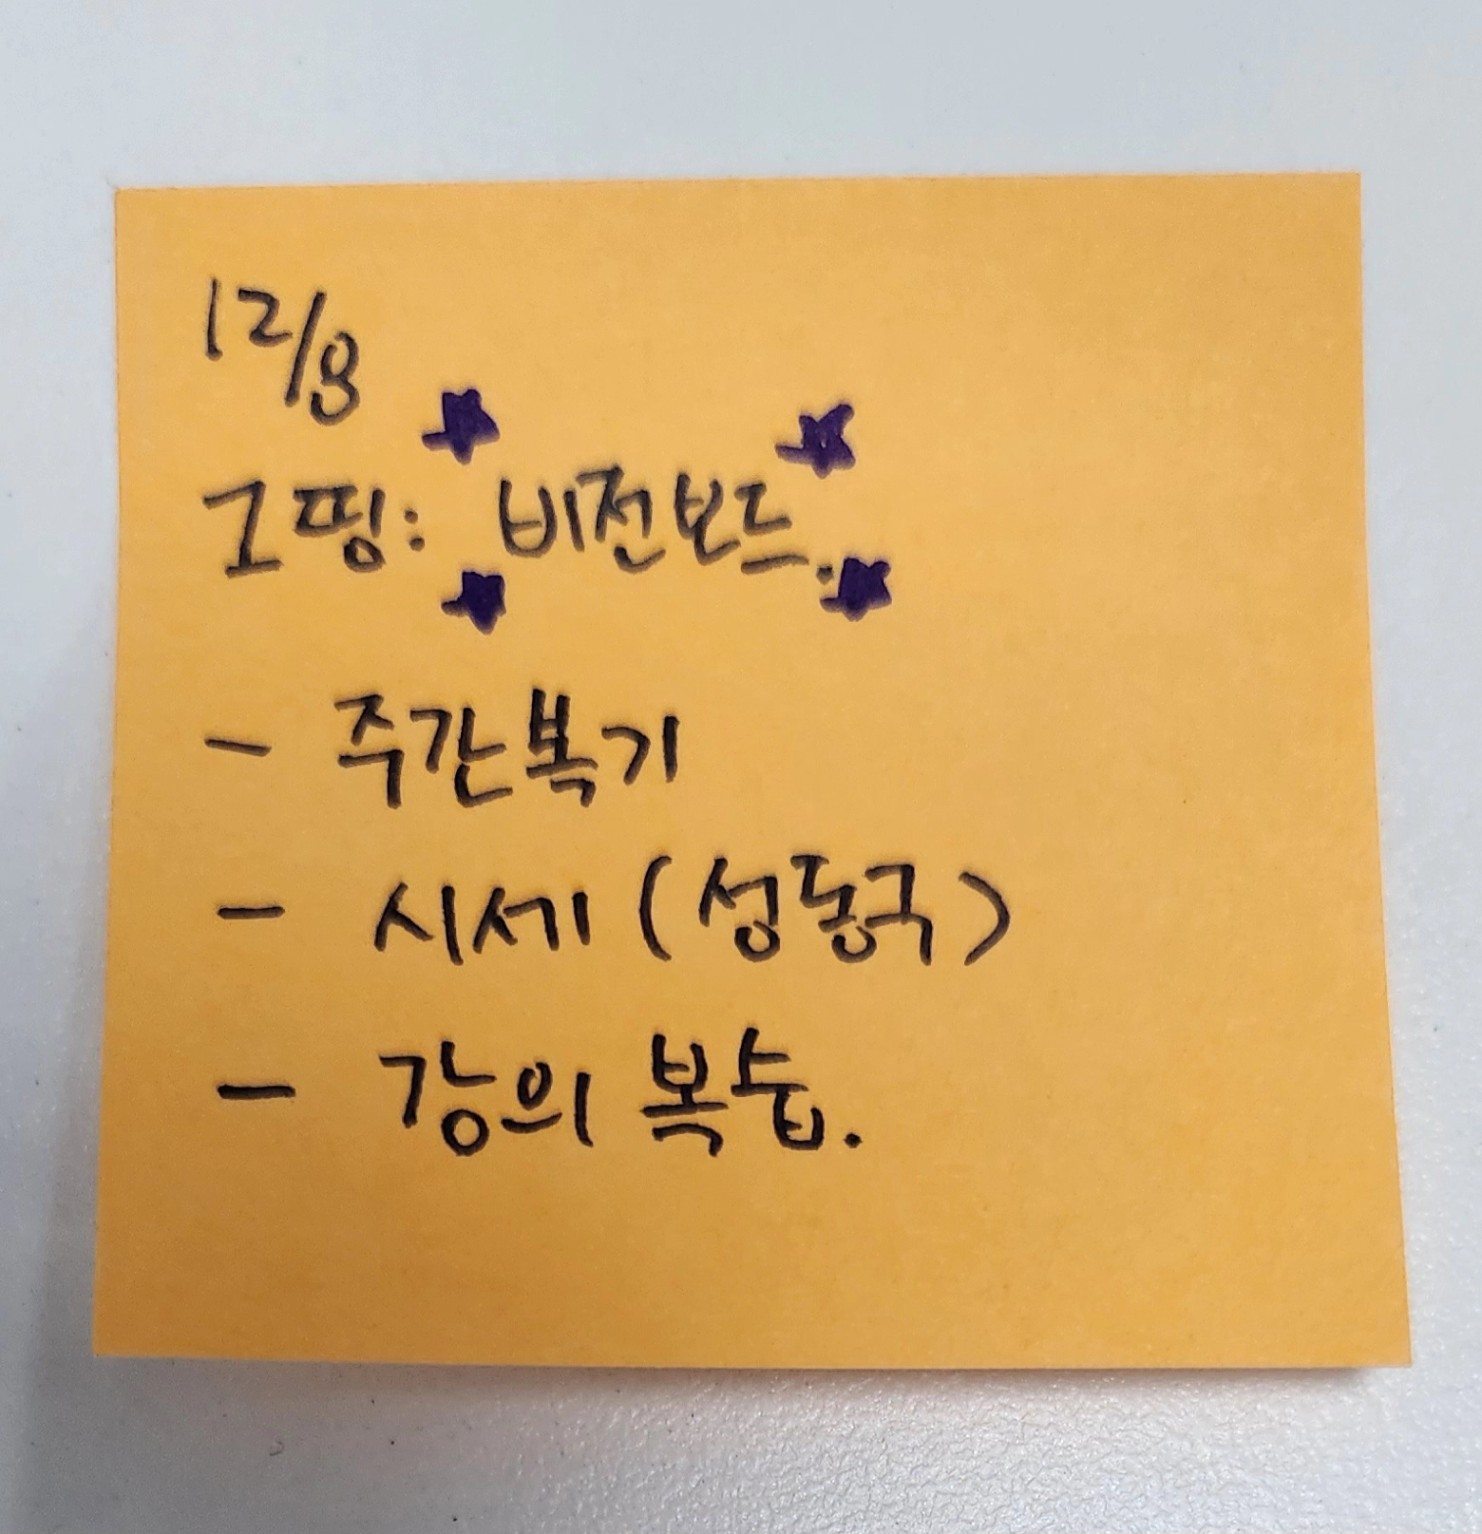 12/8
1띵: 비전보드.
- 주간복기
- 시세 (성동구)
- 강의 복습.